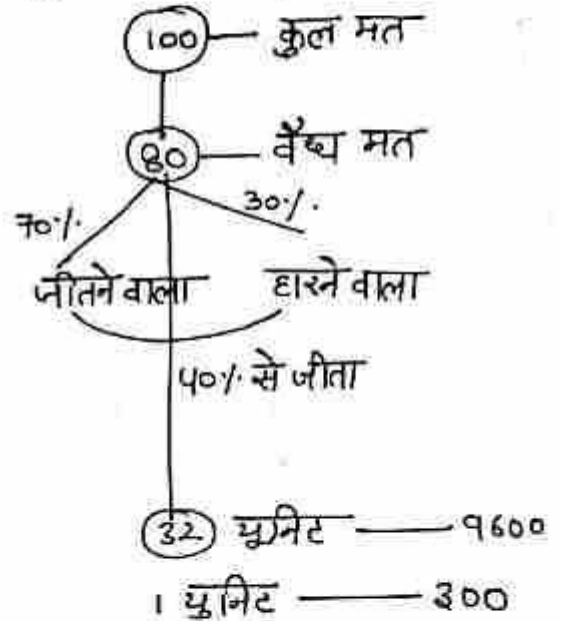 100 — कुल मत
80 — वैध मत
70% 30%
जीतने वाला हारने वाला
40% से जीता
32 यूनिट — 9600
1 युनिट — 300